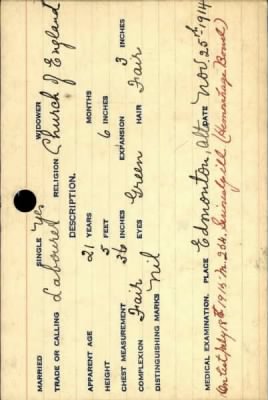 MARRIED SINGLE Yes WIDOWER
TRADE OR CALLING Labourer RELIGION Church of England
DESCRIPTION.
APPARENT AGE 21 YEARS MONTHS
HEIGHT 5 FEET 6 INCHES
CHEST MEASUREMENT 36 INCHES EXPANSION 3 INCHES
COMPLEXION Fair EYES Green HAIR Fair
DISTINGUISHING MARKS Nil
MEDICAL EXAMINATION. PLACE Edmonton, Alta DATE Nov. 25th, 1914
On list July 18th 1916 M. 234. Seriously ill (Hemorrhage Bowel)